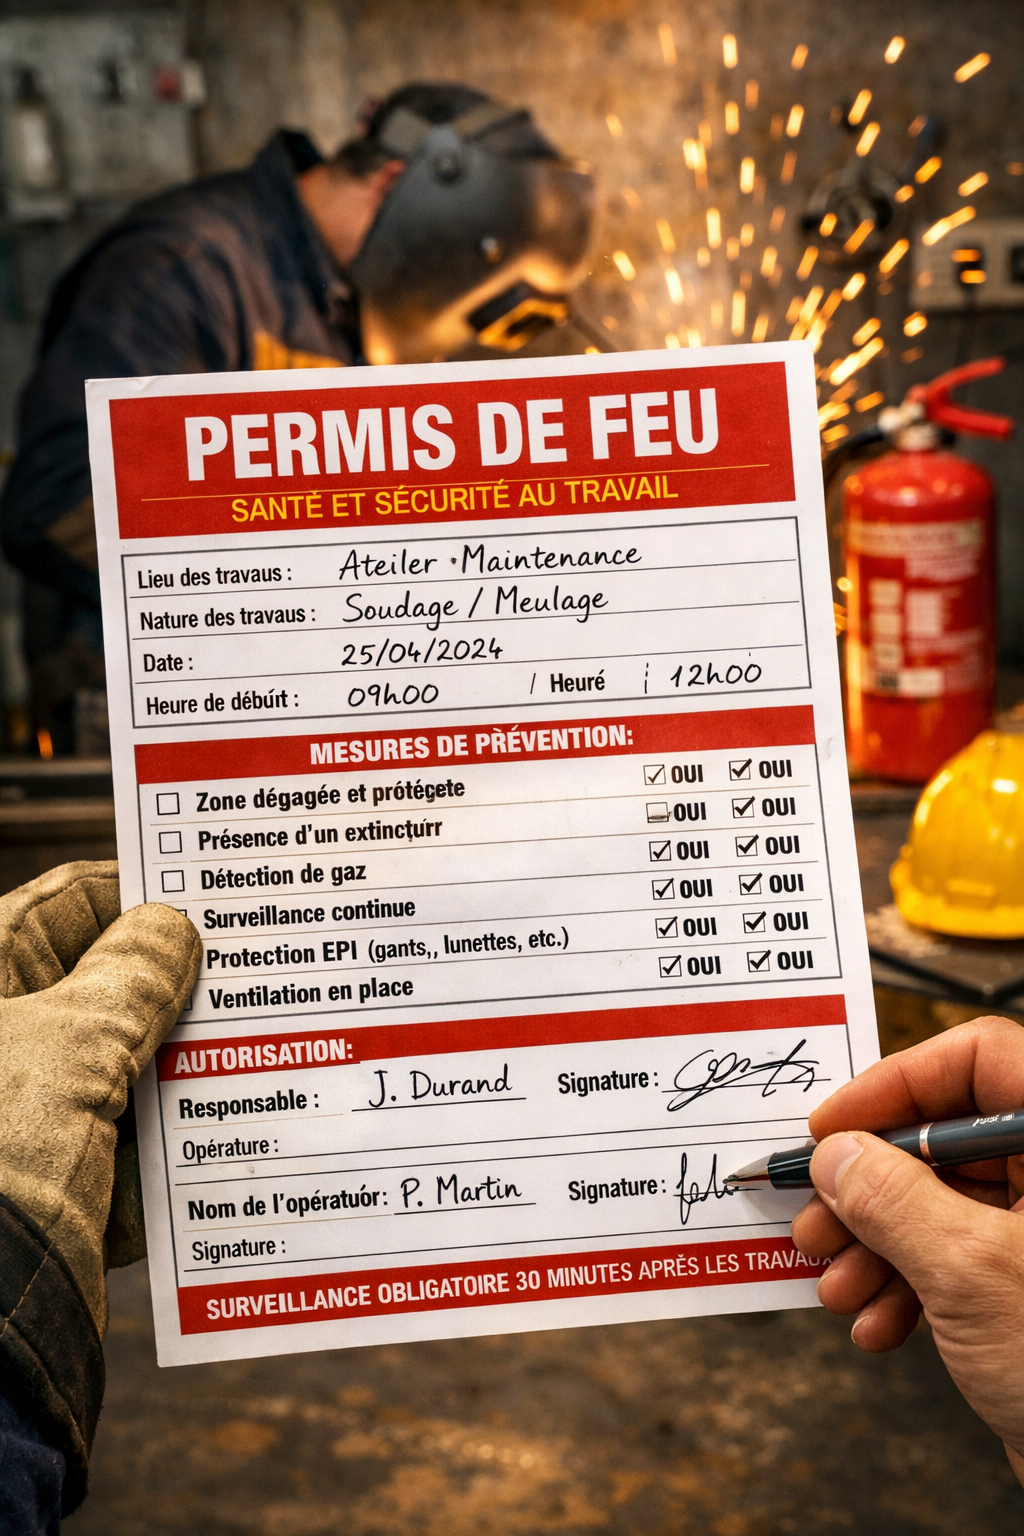 PERMIS DE FEU
SANTÉ ET SÉCURITÉ AU TRAVAIL
Lieu des travaus : Ateiler · Maintenance
Nature des travaus : Soudage / Meulage
Date : 25/04/2024
Heure de débúıt : 09h00 / Heuré ¦ 12h00
MESURES DE PRÈVENTION:
Zone dégagée et prótéçete OUI OUI
Présence d'un extincțurr OUI OUI
Détection de gaz OUI OUI
Surveillance continue OUI OUI
Protection EPI (gants,, lunettes, etc.) OUI OUI
Ventilation en place OUI OUI
AUTORISATION:
Responsable : J. Durand Signature :
Opérature :
Nom de l'opératuór: P. Martin Signature :
Signature :
SURVEILLANCE OBLIGATOIRE 30 MINUTES APRÈS LES TRAVAUX